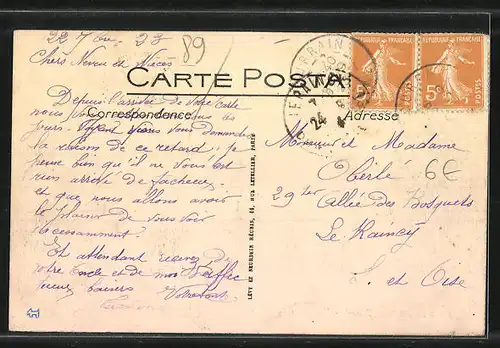 22 7bre 23
89
Chers Neveu et Nièces
CARTE POSTALE
Correspondence
Adresse
Depuis l'arrivée de votre carte
nous
jours. vous vous Demander
la raison de ce retard; je
peux bien qu'il ne vous est
rien arrivé de facheux
et que nous allons avoir
le plaisir de vous voir
recessamment.
En attendant recevez de
votre oncle et de moi
baisers
Monsieur et Madame
Oberlé
6€
29 ter Allée des Bosquets
Le Raincy
S. et Oise
LÉVY ET NEURDEIN RÉUNIS, 44, RUE LETELLIER, PARIS
REPUBLIQUE FRANÇAISE
REPUBLIQUE FRANÇAISE
5c
5c
POSTES
POSTES
24